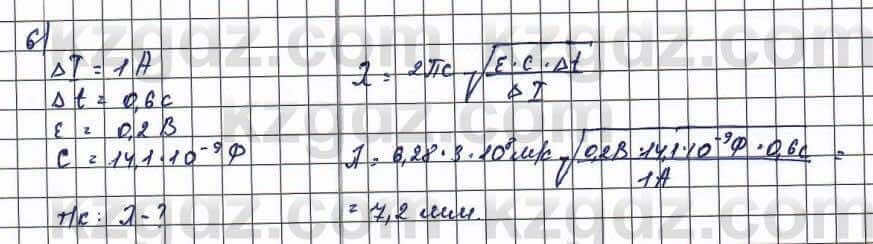 6)
ΔI = 1A
Δt = 0,6c
ε = 0,2 В
C = 14,1·10⁻⁹ Ф
Нк: λ - ?
λ = 2πc √(ε·C·Δt / ΔI)
λ = 6,28·3·10⁸ м/с √(0,2В·14,1·10⁻⁹Ф·0,6с / 1А) =
= 7,2 мм.
kzgdz.com